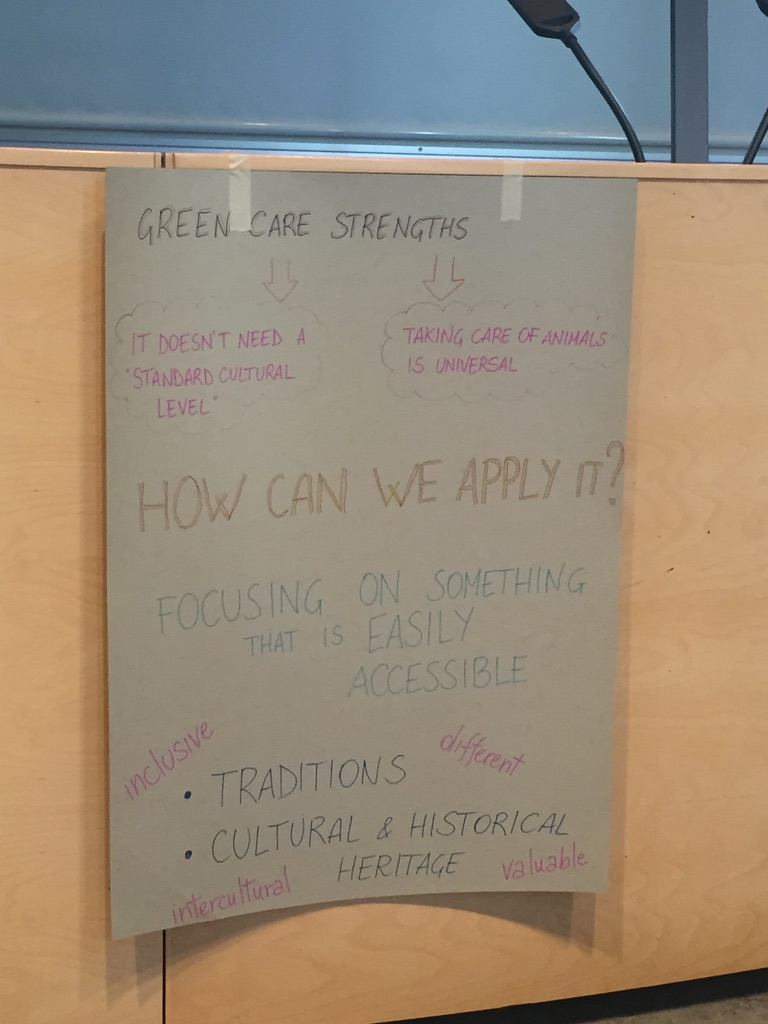 GREEN CARE STRENGTHS
IT DOESN'T NEED A
"STANDARD CULTURAL
LEVEL"
TAKING CARE OF ANIMALS
IS UNIVERSAL
HOW CAN WE APPLY IT?
FOCUSING ON SOMETHING
THAT IS EASILY
ACCESSIBLE
inclusive
different
• TRADITIONS
• CULTURAL & HISTORICAL
HERITAGE
intercultural
valuable